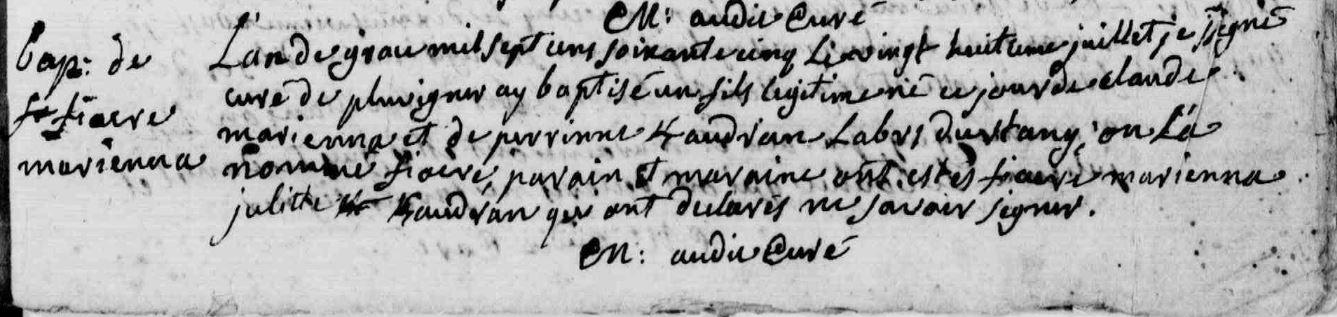 M: audic Curé
bap: de
fiacre
marienna
L'an de grace mil sept cens soixante cinq Le vingt huitieme juillet je signé
curé de pluvigner ay baptisé un fils legitime né ce jour de claude
marienna et de perrinne Kaudran Labrs du stang, on L'a
nommé fiacre, parain et maraine ont estés fiacre marienna
julitte Kaudran qui ont declarés ne savoir signer.
M: audic Curé